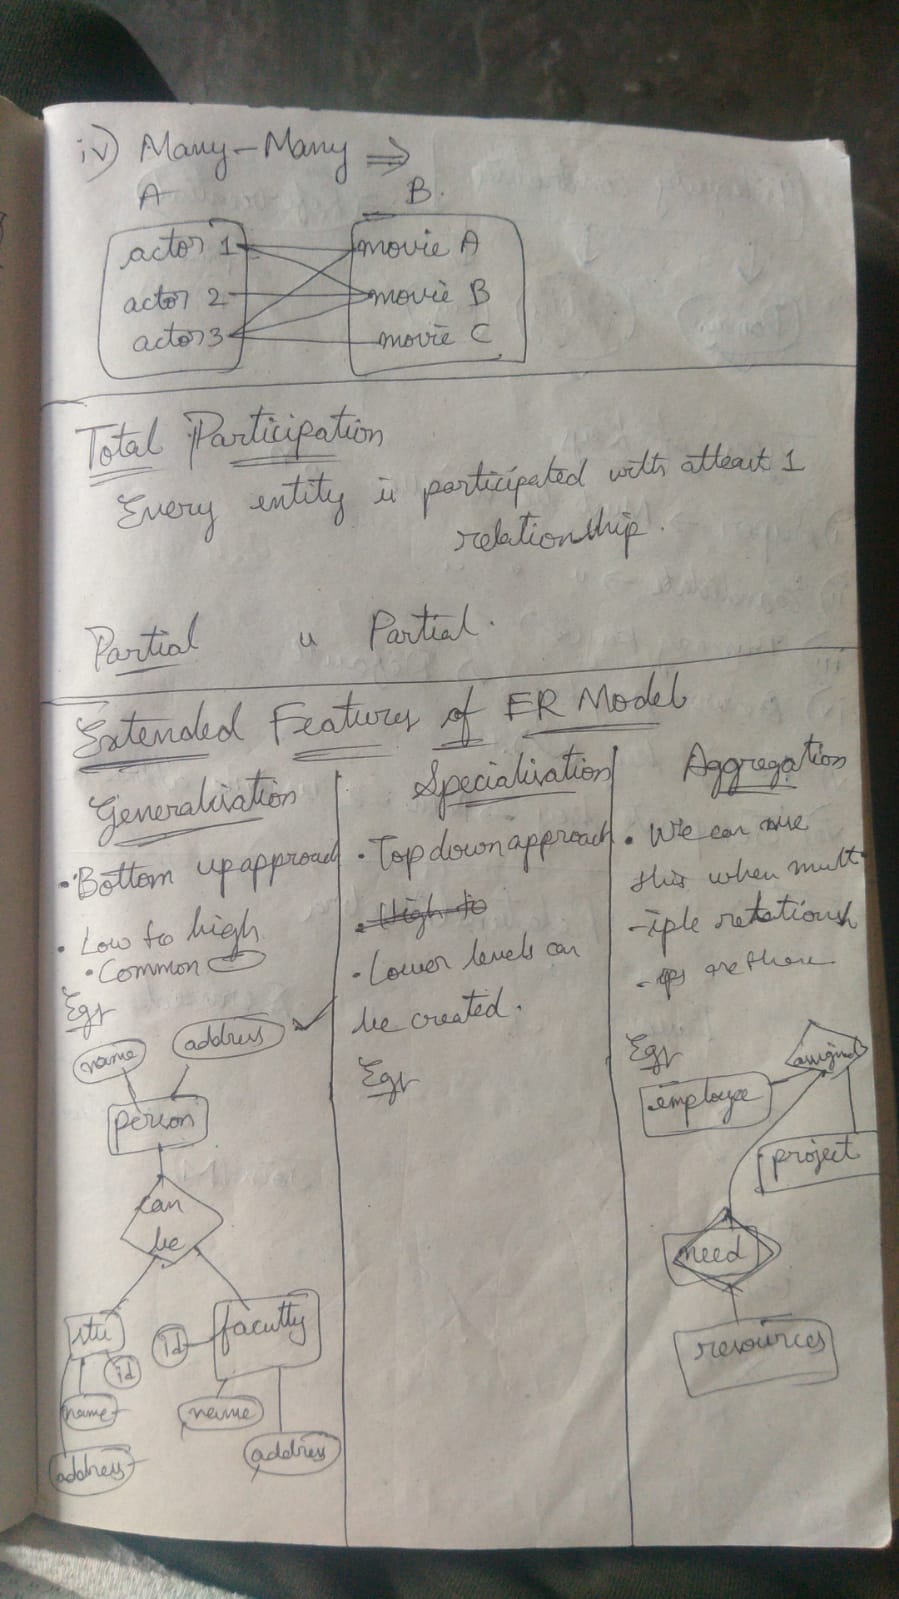 iv) Many-Many ⇒
A
B.
actor 1
actor 2
actor 3
movie A
movie B
movie C
Total Participation
Every entity is participated with atleast 1
relationship.
Partial u Partial.
Extended Features of ER Model
Generalisation
• Bottom up approach
• Low to high
• Common
Egr
name
address
person
can
be
stu
id
name
address
id
faculty
name
address
Specialisation
• Top down approach
• High to
• Lower levels can
be created.
Egr
Aggregation
• We can use
this when mult
-iple relationsh
-ips are there
Egr
employee
assigned
project
need
resources